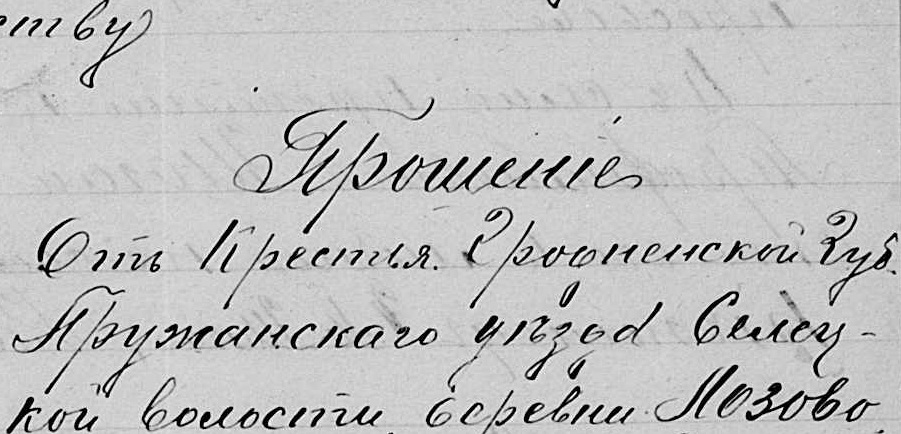 ству
Прошеніе
Отъ Крестья. Гродненской Губ.
Пружанскаго уѣзда Селец-
кой волости деревни Лозово